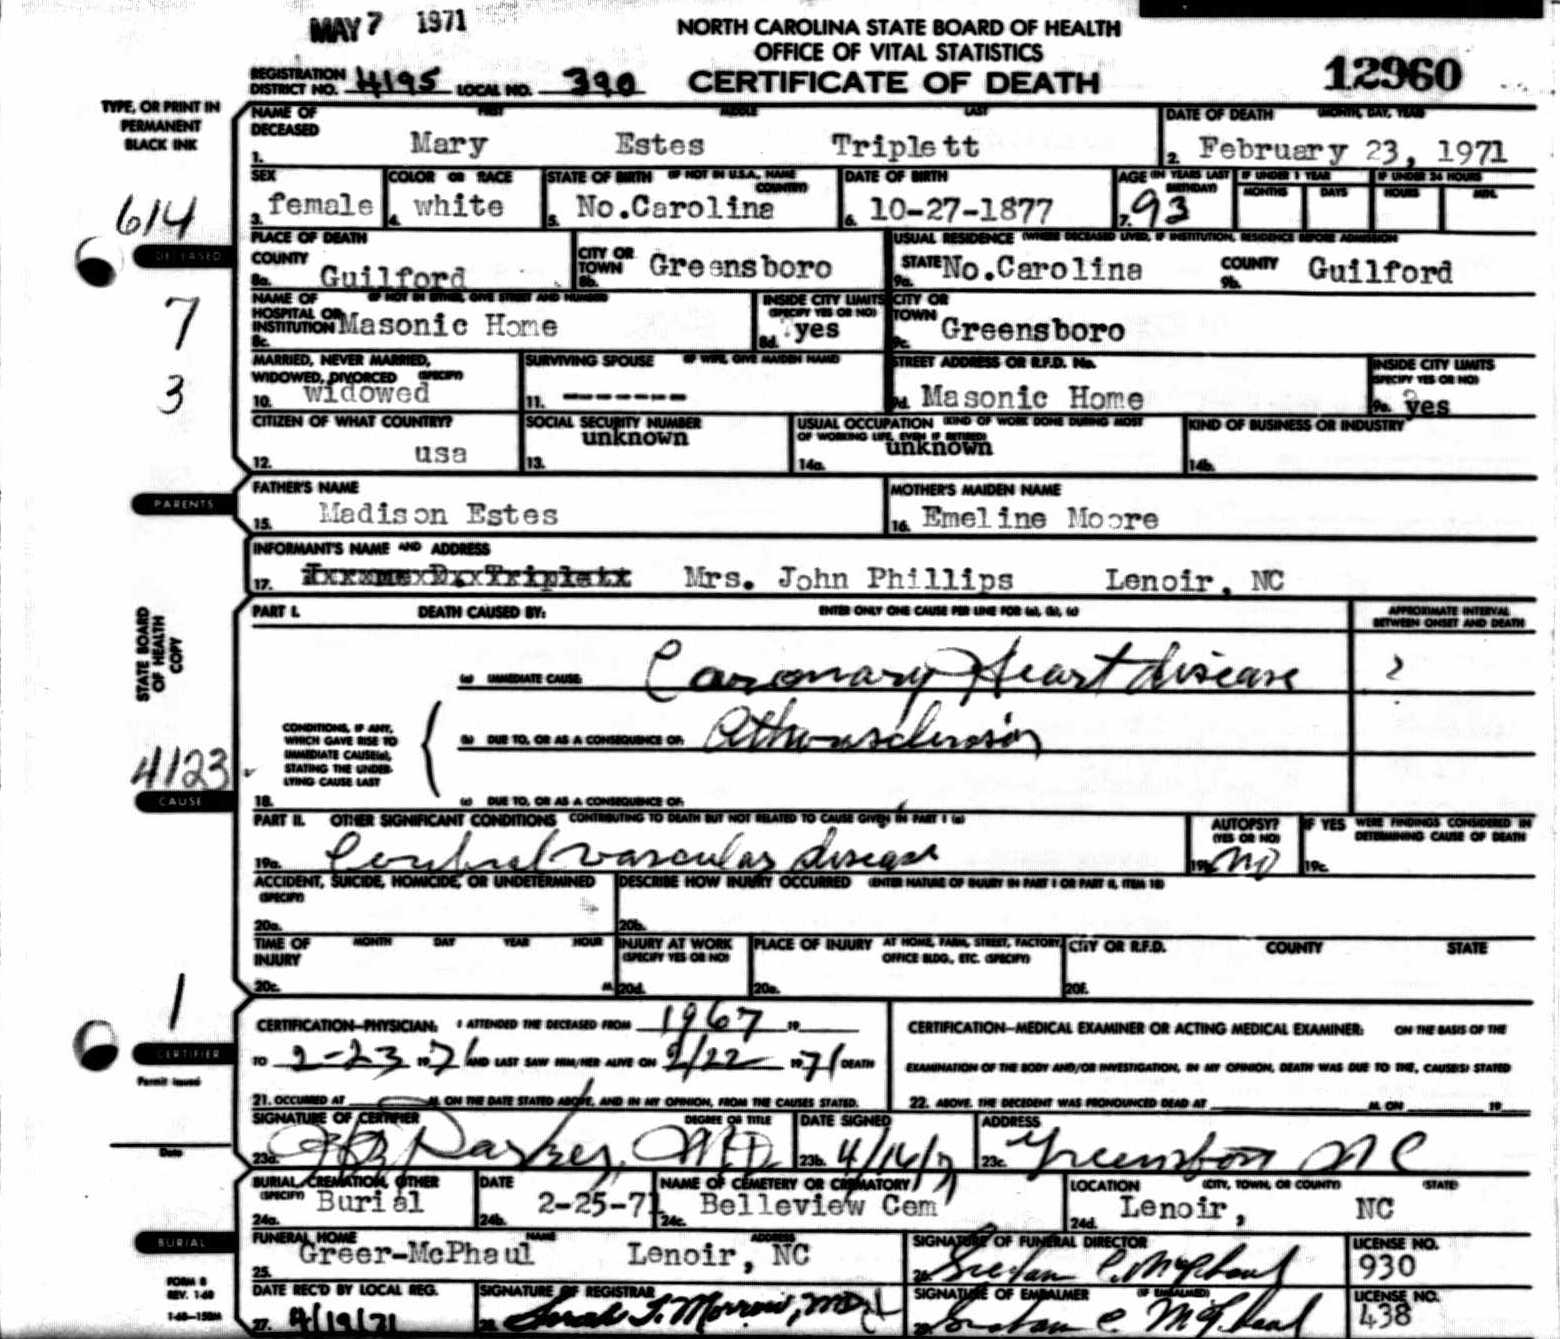 MAY 7 1971
NORTH CAROLINA STATE BOARD OF HEALTH
OFFICE OF VITAL STATISTICS
CERTIFICATE OF DEATH
12960
REGISTRATION DISTRICT NO. 4195 LOCAL NO. 390
TYPE, OR PRINT IN
PERMANENT
BLACK INK
NAME OF DECEASED FIRST MIDDLE LAST
1. Mary Estes Triplett
DATE OF DEATH (MONTH, DAY, YEAR)
2. February 23, 1971
614
DECEASED
SEX
3. female
COLOR OR RACE
4. white
STATE OF BIRTH (IF NOT IN U.S.A., NAME COUNTRY)
5. No.Carolina
DATE OF BIRTH
6. 10-27-1877
AGE (IN YEARS LAST BIRTHDAY)
7. 93
IF UNDER 1 YEAR
MONTHS DAYS
IF UNDER 24 HOURS
HOURS MIN.
PLACE OF DEATH
COUNTY
8a. Guilford
CITY OR TOWN
8b. Greensboro
USUAL RESIDENCE (WHERE DECEASED LIVED, IF INSTITUTION, RESIDENCE BEFORE ADMISSION
STATE
9a. No.Carolina
COUNTY
9b. Guilford
7
NAME OF HOSPITAL OR INSTITUTION (IF NOT IN EITHER, GIVE STREET AND NUMBER
8c. Masonic Home
INSIDE CITY LIMITS (SPECIFY YES OR NO)
8d. yes
CITY OR TOWN
9c. Greensboro
3
MARRIED, NEVER MARRIED, WIDOWED, DIVORCED (SPECIFY)
10. widowed
SURVIVING SPOUSE (IF WIFE, GIVE MAIDEN NAME)
11. -------
STREET ADDRESS OR R.F.D. No.
9d. Masonic Home
INSIDE CITY LIMITS (SPECIFY YES OR NO)
9e. yes
CITIZEN OF WHAT COUNTRY?
12. usa
SOCIAL SECURITY NUMBER
13. unknown
USUAL OCCUPATION (KIND OF WORK DONE DURING MOST OF WORKING LIFE, EVEN IF RETIRED)
14a. unknown
KIND OF BUSINESS OR INDUSTRY
14b.
PARENTS
FATHER'S NAME
15. Madison Estes
MOTHER'S MAIDEN NAME
16. Emeline Moore
INFORMANT'S NAME AND ADDRESS
17. Mrs. John Phillips Lenoir, NC
STATE BOARD
OF HEALTH
COPY
PART I. DEATH CAUSED BY: ENTER ONLY ONE CAUSE PER LINE FOR (a), (b), (c)
APPROXIMATE INTERVAL BETWEEN ONSET AND DEATH
(a) IMMEDIATE CAUSE: Coronary Heart disease ?
CONDITIONS, IF ANY,
WHICH GAVE RISE TO
IMMEDIATE CAUSE(a),
STATING THE UNDER-
LYING CAUSE LAST
(b) DUE TO, OR AS A CONSEQUENCE OF:
4123
CAUSE
18. (c) DUE TO, OR AS A CONSEQUENCE OF:
PART II. OTHER SIGNIFICANT CONDITIONS CONTRIBUTING TO DEATH BUT NOT RELATED TO CAUSE GIVEN IN PART I (a)
19a. Cerebral vascular disease
AUTOPSY? (YES OR NO)
19b. no
IF YES WERE FINDINGS CONSIDERED IN DETERMINING CAUSE OF DEATH
19c.
ACCIDENT, SUICIDE, HOMICIDE, OR UNDETERMINED (SPECIFY)
20a.
DESCRIBE HOW INJURY OCCURRED (ENTER NATURE OF INJURY IN PART I OR PART II, ITEM 18)
20b.
TIME OF INJURY MONTH DAY YEAR HOUR
20c. M.
INJURY AT WORK (SPECIFY YES OR NO)
20d.
PLACE OF INJURY AT HOME, FARM, STREET, FACTORY, OFFICE BLDG., ETC. (SPECIFY)
20e.
CITY OR R.F.D. COUNTY STATE
20f.
1
CERTIFIER
Permit issued
Date
CERTIFICATION—PHYSICIAN: I ATTENDED THE DECEASED FROM 1967 19
TO 2-23 1971 AND LAST SAW HIM/HER ALIVE ON 2/22 1971 DEATH
21. OCCURRED AT M. ON THE DATE STATED ABOVE, AND IN MY OPINION, FROM THE CAUSES STATED.
CERTIFICATION—MEDICAL EXAMINER OR ACTING MEDICAL EXAMINER: ON THE BASIS OF THE
EXAMINATION OF THE BODY AND/OR INVESTIGATION, IN MY OPINION, DEATH WAS DUE TO THE, CAUSE(S) STATED
22. ABOVE. THE DECEDENT WAS PRONOUNCED DEAD AT M. ON 19
SIGNATURE OF CERTIFIER DEGREE OR TITLE
23a. Parker, MD
DATE SIGNED
23b. 4/14/71
ADDRESS
23c. Greensboro NC
BURIAL
BURIAL, CREMATION, OTHER (SPECIFY)
24a. Burial
DATE
24b. 2-25-71
NAME OF CEMETERY OR CREMATORY
24c. Belleview Cem
LOCATION (CITY, TOWN, OR COUNTY) (STATE)
24d. Lenoir, NC
FUNERAL HOME NAME ADDRESS
25. Greer-McPhaul Lenoir, NC
SIGNATURE OF FUNERAL DIRECTOR
26. C. McPhaul
LICENSE NO.
930
FORM 8
REV. 1-68
DATE REC'D BY LOCAL REG.
27. 4/19/71
SIGNATURE OF REGISTRAR
28. Sarah T. Morrow, MD
SIGNATURE OF EMBALMER (IF EMBALMED)
29. C. McPhaul
LICENSE NO.
438